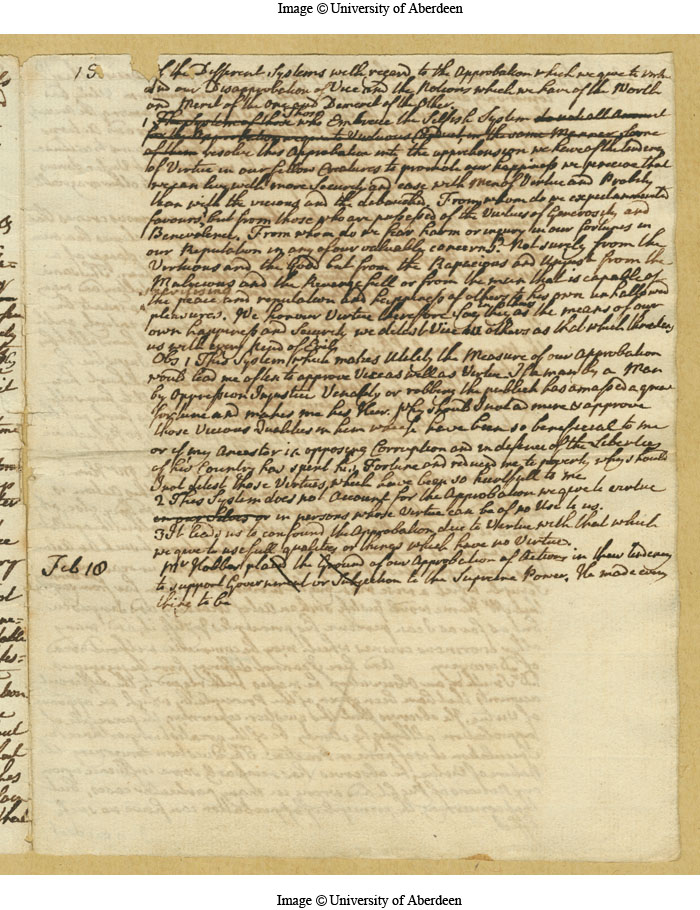 Image © University of Aberdeen
15
of the Different Systems with regard to the Approbation which we give to Virtue
and our Disapprobation of Vice and the Notions which we have of the Worth
and Merit of the one and Demerit of the other.
1 The System of those who Embrace the Selfish System do not all Account
for the Approbation we give to Virtuous Conduct in the same Manner. Some
of them resolve this Approbation into the apprehension we have of the tendency
of Virtue in our fellow Creatures to promote our happiness we perceive that
we can live with more Security and ease with Men of Virtue and Probity
than with the vicious and the debauched. From whom do we expect
favours, but from those who are possessed of the Virtues of Generosity and
Benevolence, From whom do we fear harm or injury in our fortunes in
our Reputation in any of our valuable concerns? Not surely from the
Virtuous and the Good but from the Rapacious and Unjust from the
Malicious and the Revengefull or from the man that is capable of
the peace and reputation and happiness of others to his own unhallowed
pleasures. We honour Virtue therefore say they as the means of our
own happiness and Security we detest Vice in others as that which threatens
us with every kind of Evil
Obs 1 This System which makes Utility the Measure of our Approbation
would lead me often to approve Vice as well as Virtue If a man by a Man
by Oppression Injustice Venality or robbing the publick has amassed a great
fortune and makes me his Heir. Why should I not admire & approve
those Vicious Qualities in him which have been so beneficial to me
or if my Ancestor in opposing Corruption and in defence of the Liberties
of his Country has spent his Fortune and reduced me to poverty why should
I not detest those Virtues which have been so hurtfull to me
2 This System does not Account for the Approbation we give to virtue
in our Selves or in persons whose Virtue can be of no Use to us.
3 It leads us to confound the Approbation due to Virtue with that which
we give to usefull qualities or things which have no Virtue.
Feb 18 Mr Hobbes placed the Ground of our Approbation of Actions in their tendency
to support Government or Subjection to the Supreme Power. He made every
thing to be
Image © University of Aberdeen